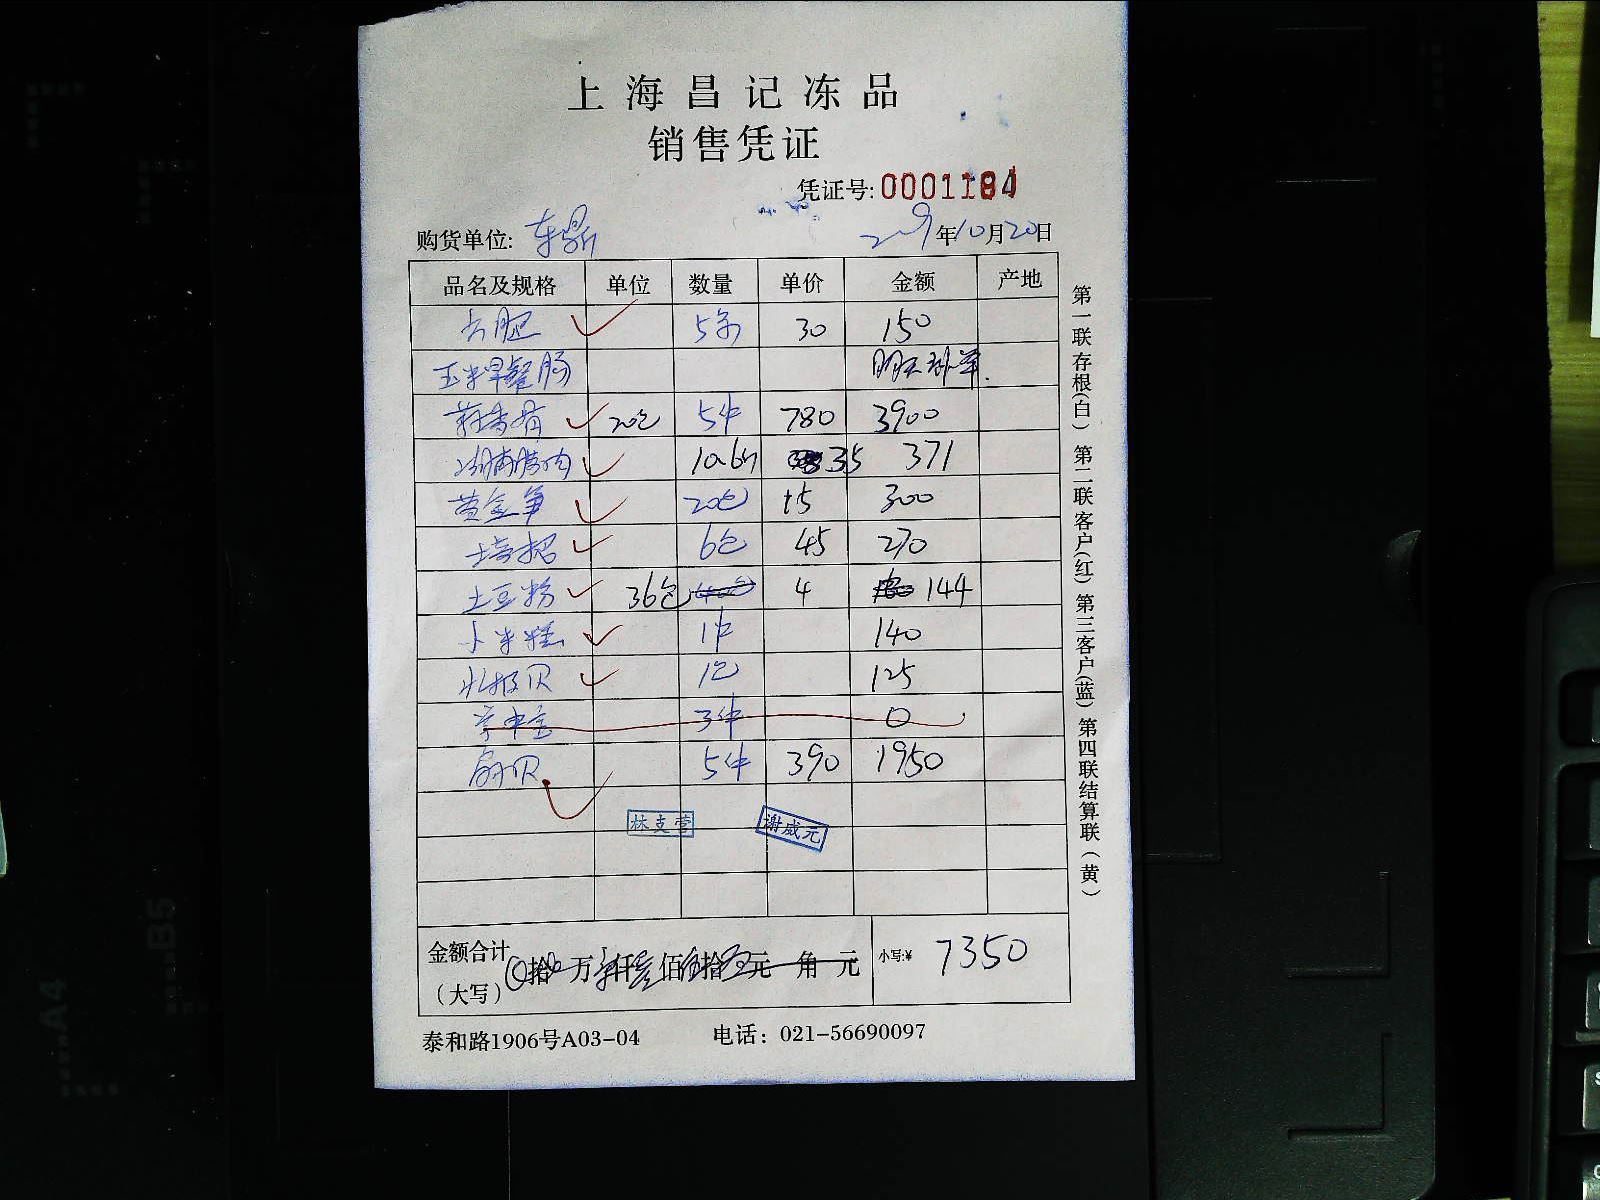 上海昌记冻品
销售凭证
凭证号: 0001184
购货单位: 东鼎 年10月20日
品名及规格 单位 数量 单价 金额 产地
5条 30 150
玉米早餐肠 明天补单.
20包 5件 780 3900
湖南腊肉 10.6斤 35 371
黄金笋 20包 15 300
培根 6包 45 270
土豆粉 36包 4 144
小米糕 1件 140
北极贝 1包 125
3件 0
扇贝 5件 390 1950
林支营 谢威元
金额合计 拾 万 仟 佰 拾 元 角 元 小写:¥ 7350
(大写)
泰和路1906号A03-04 电话: 021-56690097
第一联存根(白) 第二联客户(红) 第三客户(蓝) 第四联结算联(黄)